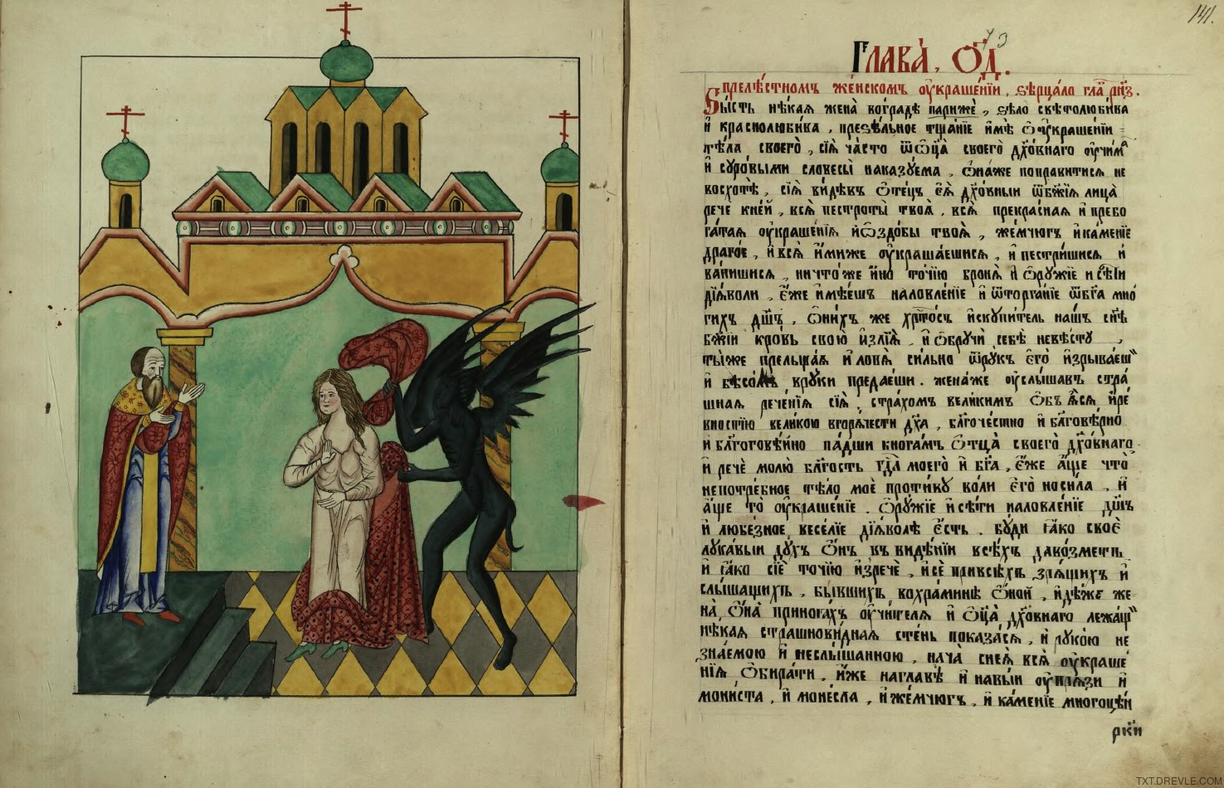 141.
Глава̀. О҃д.
прелѣ́стномъ же́нскомъ оу҆краше́нїи, ѕѣрца́ло гла҃ рн҃з.
Бы́сть нѣ́кая жена̀ воградѣ париже, ѕѣло свѣтолюбива
и҆ краснолюбива, преѕѣльное тщанїе и҆мѣ̀ ѡ҆оу҆крашенїи
тѣ́ла своегѡ̀, сїѧ̀ ча́сто ѿѻ҆ц҃а̀ своего дх҃овнаго оу҆чим
и҆ суровыми словесы̀ наказуема, ѻ҆на́же поправитисѧ не
восхотѣ̀, сїѧ̀ видѣвъ ѻ҆те́цъ еѧ̀ дх҃овныи ѿбж҃їѧ лица̀
рече кне́й, всѧ̀ пестроты̀ твоѧ̀, всѧ̀ прекраснаѧ и҆ пребо
га́таѧ оу҆крашенїѧ и҆ѡ҆здобы твоѧ̀, же́мчюгъ и҆ка́менїе
драго́е, и҆всѧ̀ и҆́миже оу҆краша́ешисѧ, и҆ пестри́шисѧ и҆
вапишисѧ, ничто́же и҆но то́чїю бронѧ̀ и҆ ѻ҆рꙋжїе и҆ сѣ́ти
дїѧ́воли, є҆́же и҆мѣешъ наловле́нїе и҆ ѿторга́нїе ѿбг҃а мно
гихъ дш҃ъ, ѻ҆нихъ же хрⷭ҇то́съ и҆скупи́тель нашъ сн҃ъ
бж҃їи кровь свою и҆злїѧ̀, и҆ ѡ҆бручѝ себѣ̀ невѣсту,
ты́же прельщаѧ и҆ ловѧ̀ сильно ѿрукъ є҆го̀ и҆зрываеш
и҆ бѣсомъ вруки предаеши. жена́же оу҆слышавъ стра
шнаѧ рече́нїѧ сїѧ̀, страхомъ великимъ ѡ҆б̾ѧ́сѧ и҆ ре
вностїю великою вгорлести дх҃а, бл҃гоче́стно и҆ бл҃говѣрно
и҆ бл҃гоговѣ́йно па́дши вногамъ ѻ҆тца̀ своего дх҃овнаго
и҆ речѐ молю̀ бл҃гость гдⷭ҇а моего и҆ бг҃а, є҆́же а҆́ще что
непотребное тѣ́ло моѐ противу воли є҆го̀ носила, и҆
а҆́ще то оу҆крашенїе, ѻ҆рꙋжїе и҆сѣ́ти наловленїе дш҃ъ
и҆ любезное веселїе дїѧ́волѣ є҆́сть. буди ꙗ҆́ко своѐ
лукавыи духъ ѻ҆нъ въ видѣ́нїи всѣхъ давозметъ
и҆ ꙗ҆́ко сїѐ то́чїю и҆зречѐ, и҆сѐ привсѣ́хъ зрѧщихъ и҆
слышащихъ, бывшихъ вохраминѣ ѻ҆ной, и҆дѣ́же же
на̀ ѻ҆на̀ приногахъ оу҆чителѧ и҆ ѻ҆ц҃а̀ дх҃овнаго лежащ
нѣкая страшновиднаѧ стѣнь показа́сѧ, и҆ рукою не
зна́емою и҆ неслышанною, нача̀ снеѧ̀ всѧ̀ оу҆краше
нїѧ ѡ҆бирати, и҆́же наглавѣ̀ и҆ навыи и҆
мониста, и҆ монесла, и҆ же́мчюгъ, и҆ ка́менїе многоцѣ́н
TXT.DREVLE.COM